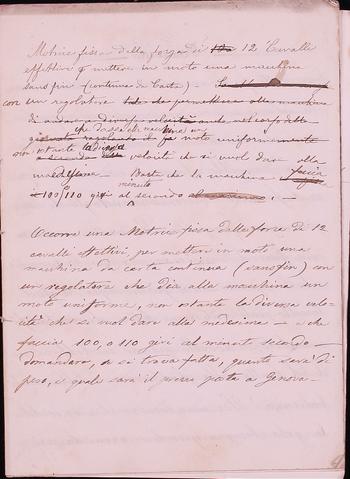 Motrice fissa della forza di 12 Cavalli
effettivi p mettere in moto una macchina
sans fin (continua da Carta) -
con un regolatore
di andare a diverse velocità anche nel corso della
che dia alla macchina un
moto uniforme
non ostante la diversa
velocità che si vuol dare alla
medesima - Basta che la macchina faccia
100/110 giri al minuto secondo
Occorre una Motrice fissa della forza di 12
cavalli effettivi, per metter in moto una
macchina da carta continua (sansfin) con
un regolatore che dia alla macchina un
moto uniforme, non ostante la diversa velo-
cità che si vuol dare alla medesima - e che
faccia 100, o 110 giri al minuto secondo -
domandare, se si trova fatta, quanto sarà di
peso, e quale sarà il prezzo posta a Genova -